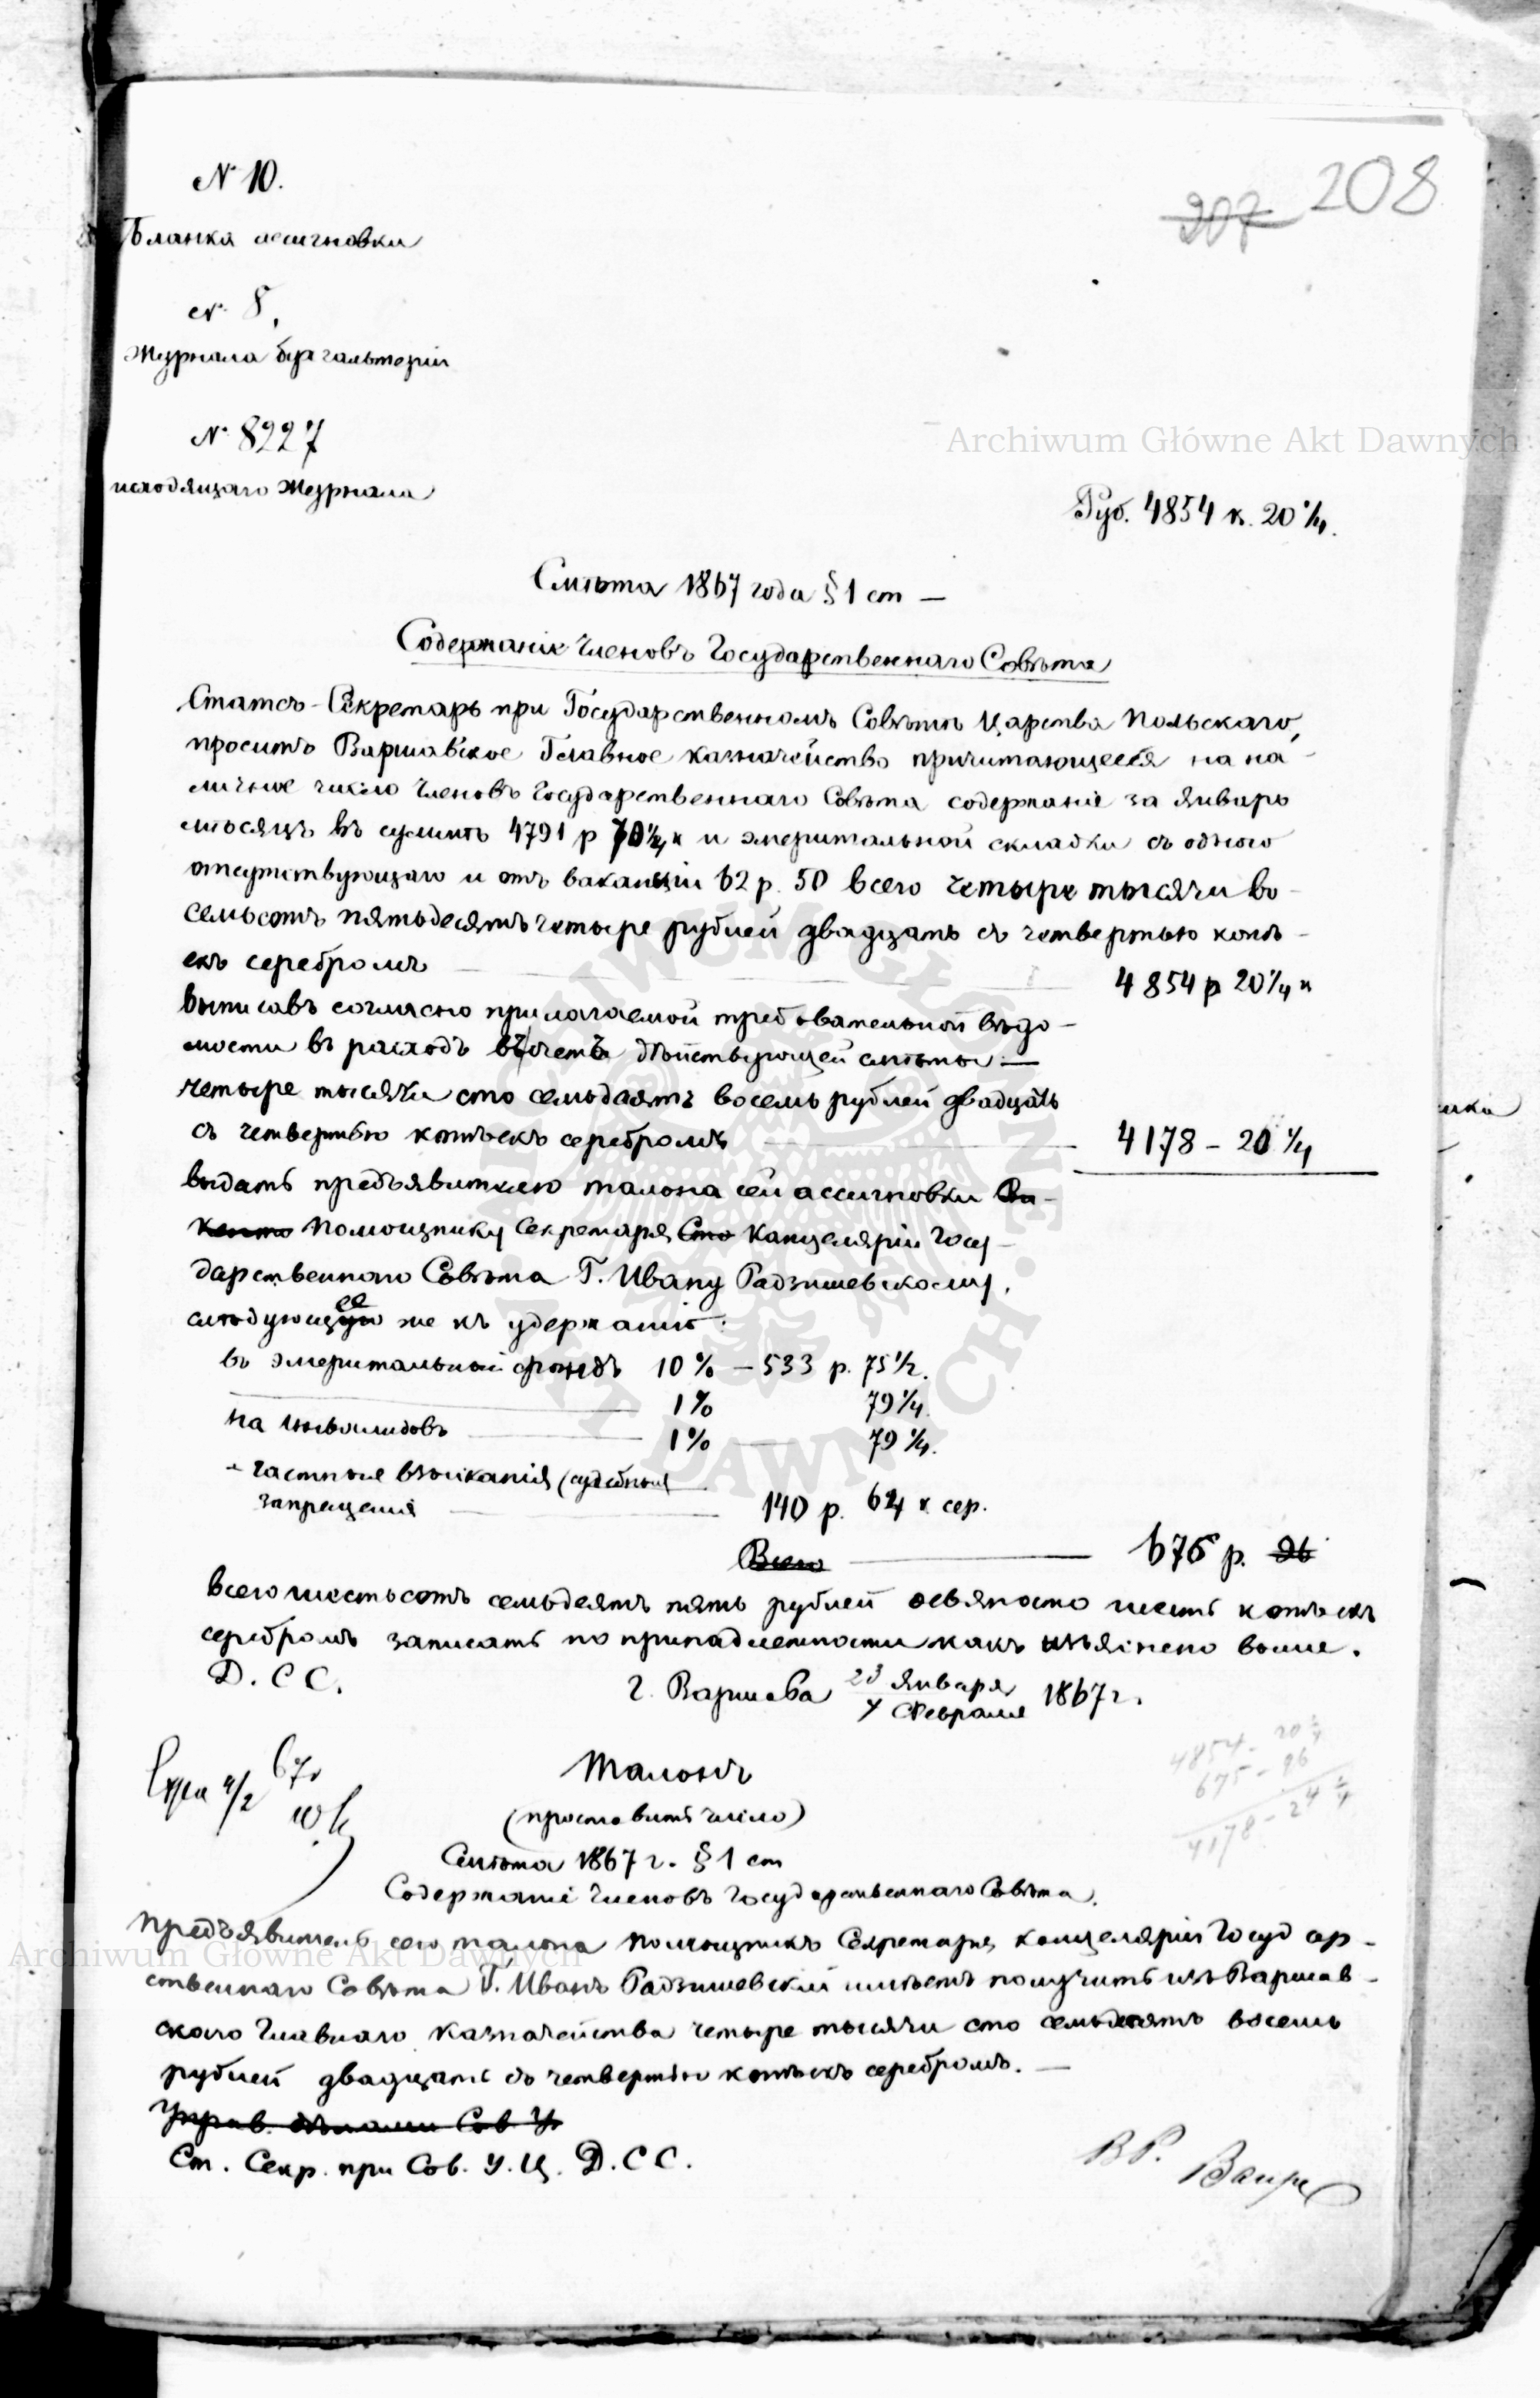 № 10.
207 208
Бланка ассигновки
№ 8.
Журнала бухгальтеріи
№ 8227
исходящаго Журнала
Archiwum Główne Akt Dawnych
Руб. 4854 к. 20 1/4.
Смѣта 1867 года § 1 ст —
Содержаніе Членовъ Государственнаго Совѣта
Статсъ-Секретарь при Государственномъ Совѣтѣ Царства Польскаго,
проситъ Варшавское Главное Казначейство причитающееся на на-
личное число Членовъ Государственнаго Совѣта содержаніе за Январь
мѣсяцъ въ суммѣ 4791 р 70 1/4 к и эмеритальной складки съ одного
отсутствующаго и отъ вакансіи 62 р. 50 всего четыре тысячи во-
семьсотъ пятьдесятъ четыре рублей двадцать съ четвертью копѣ-
екъ серебромъ 4854 р 20 1/4 к
выписавъ согласно прилагаемой требовательной вѣдо-
мости въ расходъ въ счетъ дѣйствующей смѣты —
четыре тысячи сто семьдесятъ восемь рублей двадцать
съ четвертью копѣекъ серебромъ 4178 - 20 1/4
выдать предъявителю талона сей ассигновки
Помощнику Секретаря Канцеляріи Госу-
дарственнаго Совѣта Г. Ивану Радзишевскому,
слѣдующее же къ удержанію:
въ эмеритальный фондъ 10% — 533 р. 75 1/2.
1% 79 1/4.
на инвалидовъ 1% 79 1/4.
- частныя взысканія (судебныя
запрещенія 140 р. 62 к сер.
Всего 675 р. 96
всего шестьсотъ семьдесятъ пять рублей девяносто шесть копѣекъ
серебромъ записать по принадлежности какъ изъяснено выше.
Д. С С. г. Варшава 23 Января / 4 Февраля 1867 г.
4854 - 20 1/4
675 - 96
4178 - 24 1/4
4/2 67
Талонъ
(проставить число)
Смѣта 1867 г. § 1 ст
Содержаніе Членовъ Государственнаго Совѣта.
Предъявитель сего талона Помощникъ Секретаря Канцеляріи Государ-
Archiwum Główne Akt Dawnych
ственнаго Совѣта Г. Иванъ Радзишевскій имѣетъ получить изъ Варшав-
скаго Главнаго Казначейства четыре тысячи сто семьдесятъ восемь
рублей двадцать съ четвертью копѣекъ серебромъ. —
Управ. дѣлами Сов. У.
Ст. Секр. при Сов. У. Ц. Д. С С.
ARCHIWUM GŁÓWNE AKT DAWNYCH